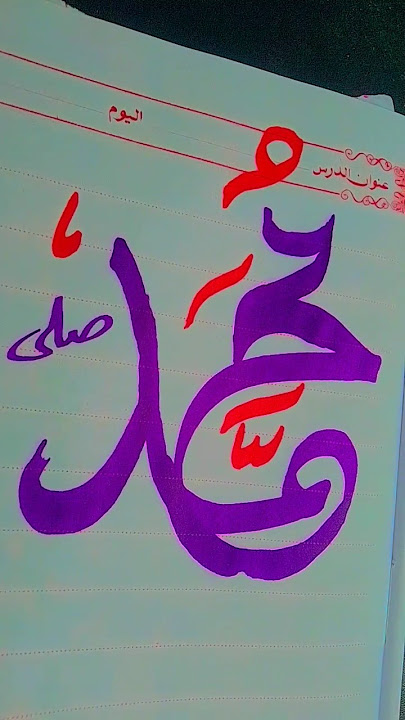 اليوم
عنوان الدرس
مُحَمَّد
صلى